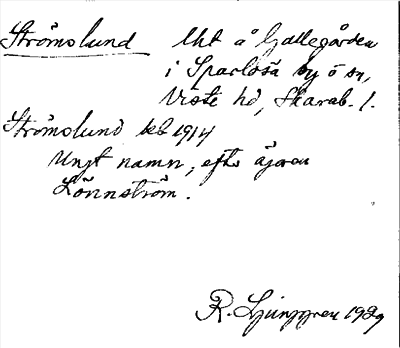 Strömslund Lht å Gallegården
i Sparlösa by o sn,
Viste hd, Skarab. l.
Strömslund 1914
Ungt namn, efter ägaren
Lönnström.
R. Ljunggren 1929